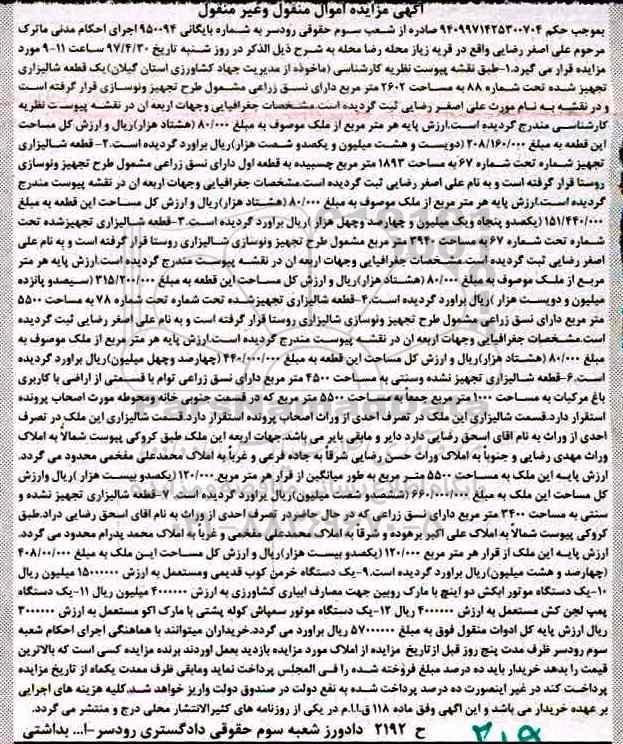 آگهی مزایده اموال منقول وغیر منقول
بموجب حکم ۹۴۰۹۹۷۱۴۲۵۳۰۰۷۰۴ صادره از شعب سوم حقوقی رودسر به شماره بایگانی ۹۵۰۰۹۴ اجرای احکام مدنی ماترک
مرحوم علی اصغر رضایی واقع در قریه زیاز محله رضا محله به شرح ذیل الذکر در روز شنبه تاریخ ۹۷/۴/۳۰ ساعت ۱۱-۹ مورد
مزایده قرار می گیرد.۱-طبق نقشه پیوست نظریه کارشناسی (ماخوذه از مدیریت جهاد کشاورزی استان گیلان)یک قطعه شالیزاری
تجهیز شده تحت شماره ۸۸ به مساحت ۲۶۰۲ متر مربع دارای نسق زراعی مشمول طرح تجهیز ونوسازی قرار گرفته است
و در نقشه به نام مورث علی اصغر رضایی ثبت گردیده است.مشخصات جغرافیایی وجهات اربعه ان در نقشه پیوست نظریه
کارشناسی مندرج گردیده است.ارزش پایه هر متر مربع از ملک موصوف به مبلغ ۸۰/۰۰۰ (هشتاد هزار)ریال و ارزش کل مساحت
این قطعه به مبلغ ۲۰۸/۱۶۰/۰۰۰ (دویست و هشت میلیون و یکصدو شصت هزار)ریال براورد گردیده است.۲- قطعه شالیزاری
تجهیز شماره تحت شماره ۶۷ به مساحت ۱۸۹۳ متر مربع چسبیده به قطعه اول دارای نسق زراعی مشمول طرح تجهیز ونوسازی
روستا قرار گرفته است و به نام علی اصغر رضایی ثبت گردیده است.مشخصات جغرافیایی وجهات اربعه ان در نقشه پیوست مندرج
گردیده است.ارزش پایه هر متر مربع از ملک موصوف به مبلغ ۸۰/۰۰۰ (هشتاد هزار)ریال و ارزش کل مساحت این قطعه به مبلغ
۱۵۱/۴۴۰/۰۰۰ (یکصدو پنجاه ویک میلیون و چهارصد وچهل هزار )ریال براورد گردیده است.۳-قطعه شالیزاری تجهیزشده تحت
شماره تحت شماره ۶۷ به مساحت ۳۹۴۰ متر مربع مشمول طرح تجهیز ونوسازی شالیزاری روستا قرار گرفته است و به نام علی
اصغر رضایی ثبت گردیده است.مشخصات جغرافیایی وجهات اربعه ان در نقشه پیوست مندرج گردیده است.ارزش پایه هر متر
مربع از ملک موصوف به مبلغ ۸۰/۰۰۰ (هشتاد هزار)ریال و ارزش کل مساحت این قطعه به مبلغ ۳۱۵/۲۰۰/۰۰۰ (سیصدو پانزده
میلیون و دویست هزار )ریال براورد گردیده است.۴-قطعه شالیزاری تجهیزشده تحت شماره تحت شماره ۷۸ به مساحت ۵۵۰۰
متر مربع دارای نسق زراعی مشمول طرح تجهیز ونوسازی شالیزاری روستا قرار گرفته است و به نام علی اصغر رضایی ثبت گردیده
است.مشخصات جغرافیایی وجهات اربعه ان در نقشه پیوست مندرج گردیده است.ارزش پایه هر متر مربع از ملک موصوف به
مبلغ ۸۰/۰۰۰ (هشتاد هزار)ریال و ارزش کل مساحت این قطعه به مبلغ ۴۴۰/۰۰۰/۰۰۰ (چهارصد وچهل میلیون)ریال براورد گردیده
است.۶-قطعه شالیزاری تجهیز نشده وسنتی به مساحت ۴۵۰۰ متر مربع دارای نسق زراعی توام با قسمتی از اراضی با کاربری
باغ مرکبات به مساحت ۱۰۰۰ متر مربع جمعا به مساحت ۵۵۰۰ متر مربع که در قسمت جنوبی خانه ومحوطه مورث اصحاب پرونده
استقرار دارد.قسمت شالیزاری این ملک در تصرف احدی از وراث اصحاب پرونده استقرار دارد.قسمت شالیزاری این ملک در تصرف
احدی از وراث به نام اقای اسحق رضایی دارد دایر و مابقی بایر می باشد.جهات اربعه این ملک طبق کروکی پیوست شمالاً به املاک
وراث مهدی رضایی و جنوباً به املاک وراث حسن رضایی شرقاً به جاده فرعی و غرباً به املاک محمدعلی مفخمی محدود می گردد.
ارزش پایه این ملک به مساحت ۵۵۰۰ متر مربع به طور میانگین از قرار هر متر مربع ۱۲۰/۰۰۰ (یکصدو بیست هزار )ریال وارزش
کل مساحت این ملک به مبلغ ۶۶۰/۰۰۰/۰۰۰ (ششصدو شصت میلیون)ریال براورد گردیده است. ۷-قطعه شالیزاری تجهیز نشده و
سنتی به مساحت ۳۴۰۰ متر مربع دارای نسق زراعی که در حال حاضر در تصرف احدی از وراث به نام اقای اسحق رضایی دراد.طبق
کروکی پیوست شمالاً به املاک علی اکبر برهوده و شرقاً به املاک محمدعلی مفخمی و غرباً به املاک محمد پدرام محدود می گردد.
ارزش پایه این ملک از قرار هر متر مربع ۱۲۰/۰۰۰ (یکصدو بیست هزار)ریال و ارزش کل مساحت این ملک به مبلغ ۴۰۸/۰۰/۰۰۰
(چهارصد و هشت میلیون)ریال براورد گردیده است.۹-یک دستگاه خرمن کوب قدیمی ومستعمل به ارزش ۱۵۰۰۰۰۰۰ میلیون ریال
۱۰-یک دستگاه موتور ابکش دو اینچ با مارک روبین جهت مصارف ابیاری کشاورزی به ارزش ۴۰۰۰۰۰۰ میلیون ریال ۱۱-یک دستگاه
پمپ لجن کش مستعمل به ارزش ۴۰۰۰۰۰۰ ریال ۱۲-یک دستگاه موتور سمپاش کوله پشتی با مارک اکو مستعمل به ارزش ۳۰۰۰۰۰۰
ریال ارزش پایه کل ادوات منقول فوق به مبلغ ۵۷۰۰۰۰۰۰ ریال براورد می گردد.خریداران میتوانند با هماهنگی اجرای احکام شعبه
سوم رودسر ظرف مدت پنج روز قبل ازتاریخ مزایده از املاک مورد مزایده بازدید بعمل اوردند برنده مزایده کسی است که بالاترین
قیمت را بدهد خریدار باید ده درصد مبلغ فروخته شده را فی المجلس پرداخت نماید ومابقی ظرف مدت یکماه از تاریخ مزایده
پرداخت کند در غیر اینصورت ده درصد پرداخت شده به نفع دولت در صندوق دولت واریز خواهد شد.کلیه هزینه های اجرایی
بر عهده خریدار می باشد و این اگهی وفق ماده ۱۱۸ ق.ا.ا.م در یکی از روزنامه های کثیرالانتشار محلی درج و منتشر می گردد.
ح ۲۱۹۲ دادورز شعبه سوم حقوقی دادگستری رودسر-ا... بداشتی